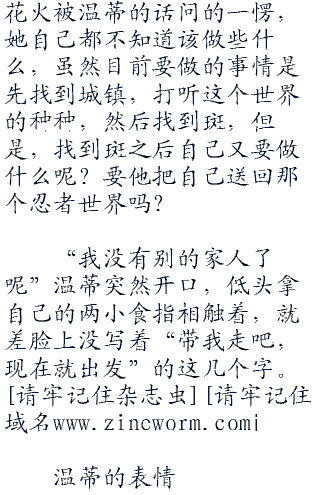 花火被温蒂的话问的一愣，
她自己都不知道该做些什
么，虽然目前要做的事情是
先找到城镇，打听这个世界
的种种，然后找到斑，但
是，找到斑之后自己又要做
什么呢？要他把自己送回那
个忍者世界吗？
“我没有别的家人了
呢”温蒂突然开口，低头拿
自己的两小食指相触着，就
差脸上没写着“带我走吧，
现在就出发”的这几个字。
[请牢记住杂志虫][请牢记住
域名www.zincworm.com]
温蒂的表情